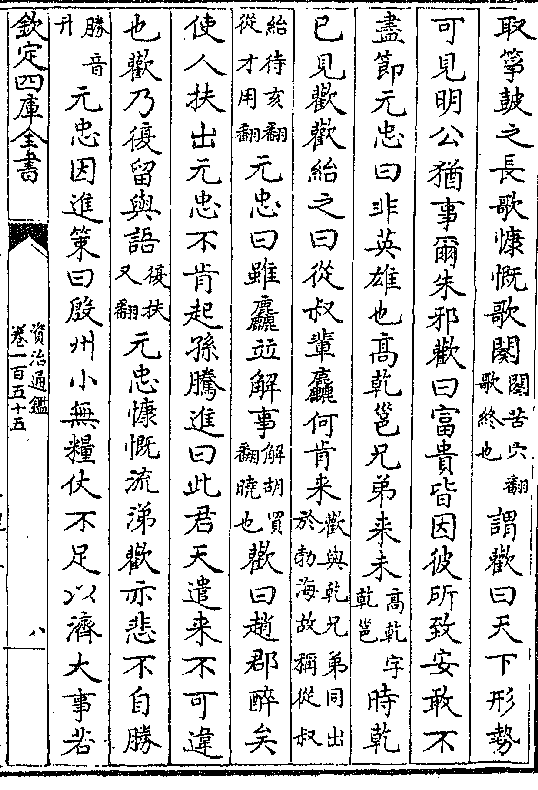 取箏皷之長歌慷慨歌闋闋苦穴翻歌終也謂歡曰天下形勢
可見明公猶事爾朱邪歡曰富貴皆因彼所致安敢不
盡節元忠曰非英雄也髙乾邕兄弟来未髙乾字乾邕時乾
已見歡歡紿之曰從叔輩麤何肯来歡與乾兄弟同出於勃海故稱從叔
紿待亥翻從才用翻元忠曰雖麤竝解事解胡買翻曉也歡曰趙郡醉矣
使人扶出元忠不肯起孫騰進曰此君天遣来不可違
也歡乃復留與語復扶又翻元忠慷慨流涕歡亦悲不自勝
勝音升元忠因進策曰殷州小無糧仗不足以濟大事若
欽定四庫全書
資治通鑑
卷一百五十五
八